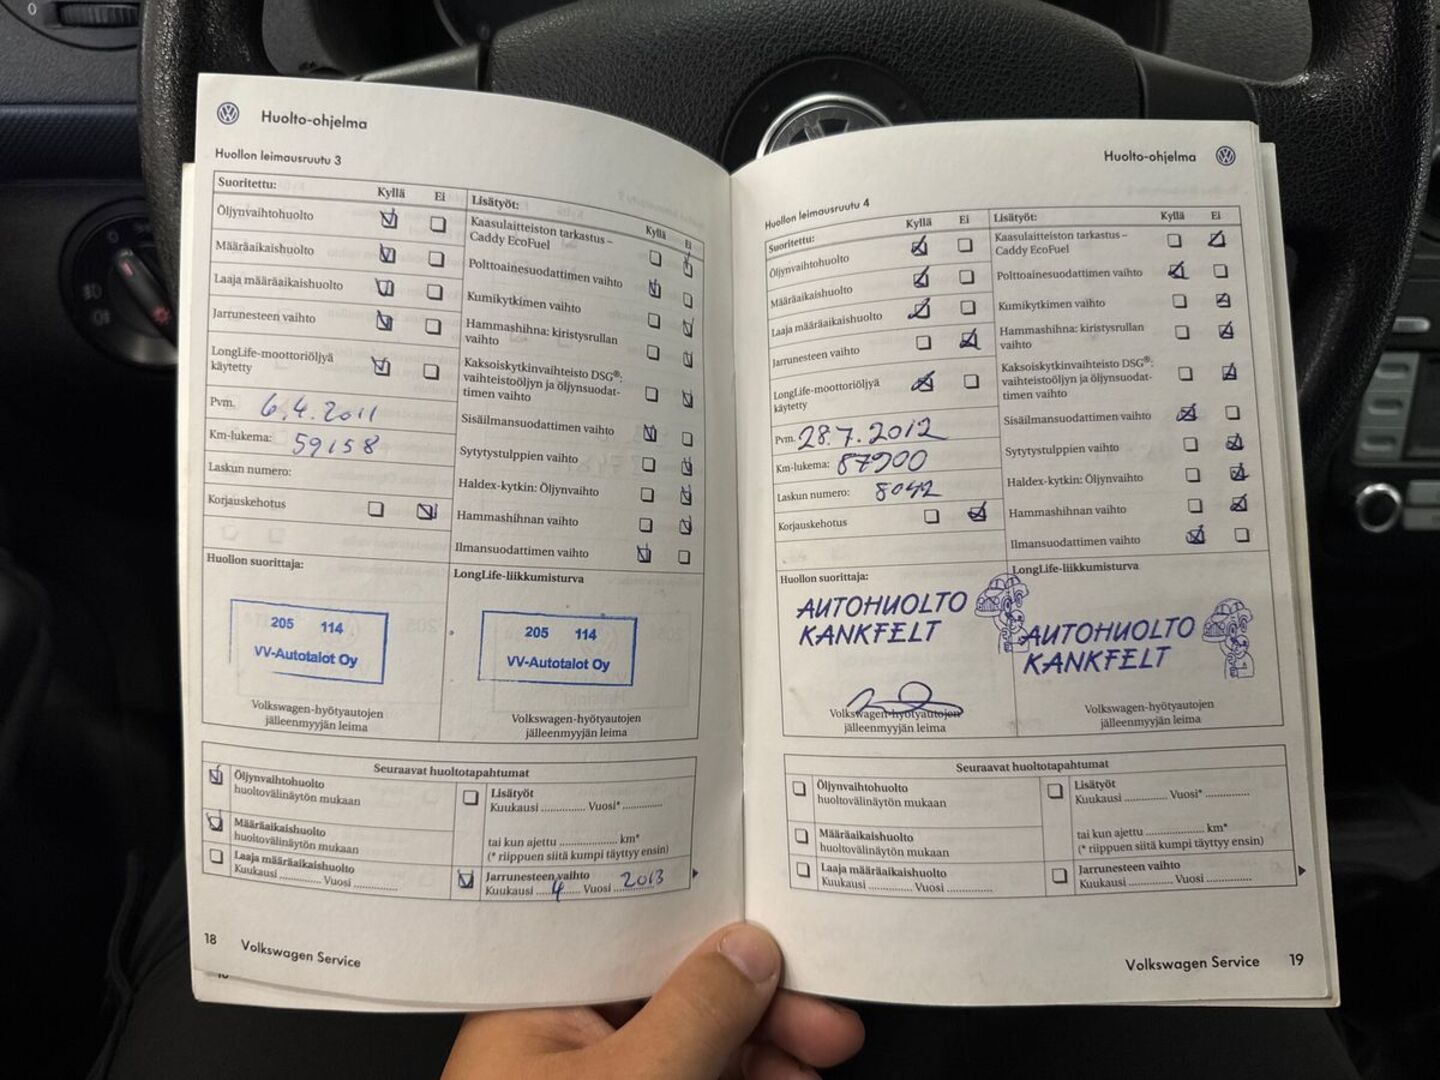 Huolto-ohjelma
Huollon leimausruutu 3
Suoritettu: Kyllä Ei
Öljynvaihtohuolto
Määräaikaishuolto
Laaja määräaikaishuolto
Jarrunesteen vaihto
LongLife-moottoriöljyä
käytetty
Pvm. 6.4.2011
Km-lukema: 59158
Laskun numero:
Korjauskehotus
Lisätyöt: Kyllä Ei
Kaasulaitteiston tarkastus –
Caddy EcoFuel
Polttoainesuodattimen vaihto
Kumikytkimen vaihto
Hammashihna: kiristysrullan
vaihto
Kaksoiskytkinvaihteisto DSG®:
vaihteistoöljyn ja öljynsuodat-
timen vaihto
Sisäilmansuodattimen vaihto
Sytytystulppien vaihto
Haldex-kytkin: Öljynvaihto
Hammashihnan vaihto
Ilmansuodattimen vaihto
Huollon suorittaja:
205 114
VV-Autotalot Oy
Volkswagen-hyötyautojen
jälleenmyyjän leima
LongLife-liikkumisturva
205 114
VV-Autotalot Oy
Volkswagen-hyötyautojen
jälleenmyyjän leima
Seuraavat huoltotapahtumat
Öljynvaihtohuolto
huoltovälinäytön mukaan
Määräaikaishuolto
huoltovälinäytön mukaan
Laaja määräaikaishuolto
Kuukausi ............. Vuosi .............
Lisätyöt
Kuukausi ............. Vuosi* .............
tai kun ajettu .................. km*
(* riippuen siitä kumpi täyttyy ensin)
Jarrunesteen vaihto
Kuukausi ....4...... Vuosi 2013
18 Volkswagen Service
Huolto-ohjelma
Huollon leimausruutu 4
Suoritettu: Kyllä Ei
Öljynvaihtohuolto
Määräaikaishuolto
Laaja määräaikaishuolto
Jarrunesteen vaihto
LongLife-moottoriöljyä
käytetty
Pvm. 28.7.2012
Km-lukema: 87900
Laskun numero: 8042
Korjauskehotus
Lisätyöt: Kyllä Ei
Kaasulaitteiston tarkastus –
Caddy EcoFuel
Polttoainesuodattimen vaihto
Kumikytkimen vaihto
Hammashihna: kiristysrullan
vaihto
Kaksoiskytkinvaihteisto DSG®:
vaihteistoöljyn ja öljynsuodat-
timen vaihto
Sisäilmansuodattimen vaihto
Sytytystulppien vaihto
Haldex-kytkin: Öljynvaihto
Hammashihnan vaihto
Ilmansuodattimen vaihto
Huollon suorittaja:
AUTOHUOLTO
KANKFELT
Volkswagen-hyötyautojen
jälleenmyyjän leima
LongLife-liikkumisturva
AUTOHUOLTO
KANKFELT
Volkswagen-hyötyautojen
jälleenmyyjän leima
Seuraavat huoltotapahtumat
Öljynvaihtohuolto
huoltovälinäytön mukaan
Määräaikaishuolto
huoltovälinäytön mukaan
Laaja määräaikaishuolto
Kuukausi ............. Vuosi .............
Lisätyöt
Kuukausi ............. Vuosi* .............
tai kun ajettu .................. km*
(* riippuen siitä kumpi täyttyy ensin)
Jarrunesteen vaihto
Kuukausi ............. Vuosi .............
Volkswagen Service 19